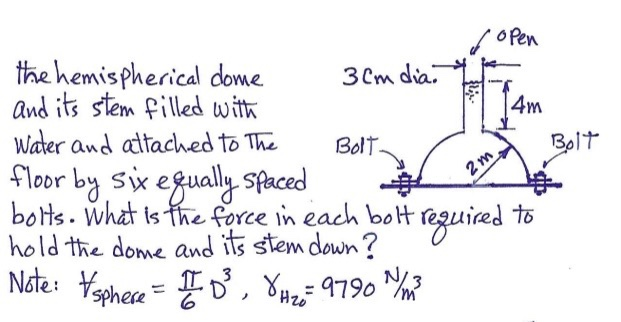 open
the hemispherical dome
3cm dia.
and its stem filled with
4m
Water and attached to The
Bolt
Bolt
2m
floor by six equally spaced
bolts. What is the force in each bolt required to
hold the dome and its stem down?
Note: ∀sphere = π/6 D³, γH₂o = 9790 N/m³